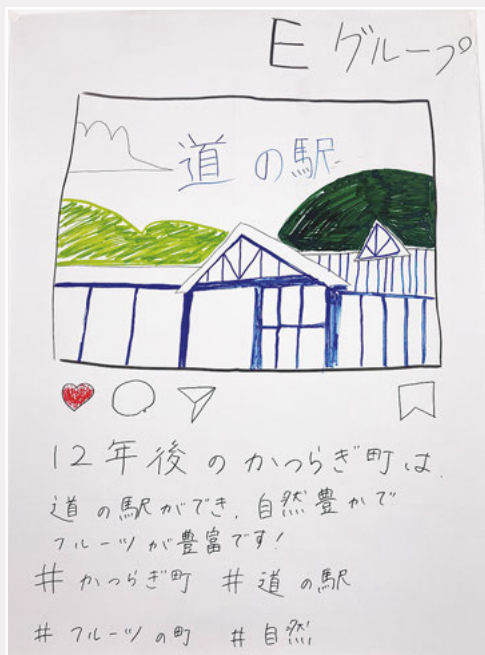 E グループ
道の駅
12年後のかつらぎ町は、
道の駅ができ、自然豊かで
フルーツが豊富です！
# かつらぎ町 # 道の駅
# フルーツの町 # 自然